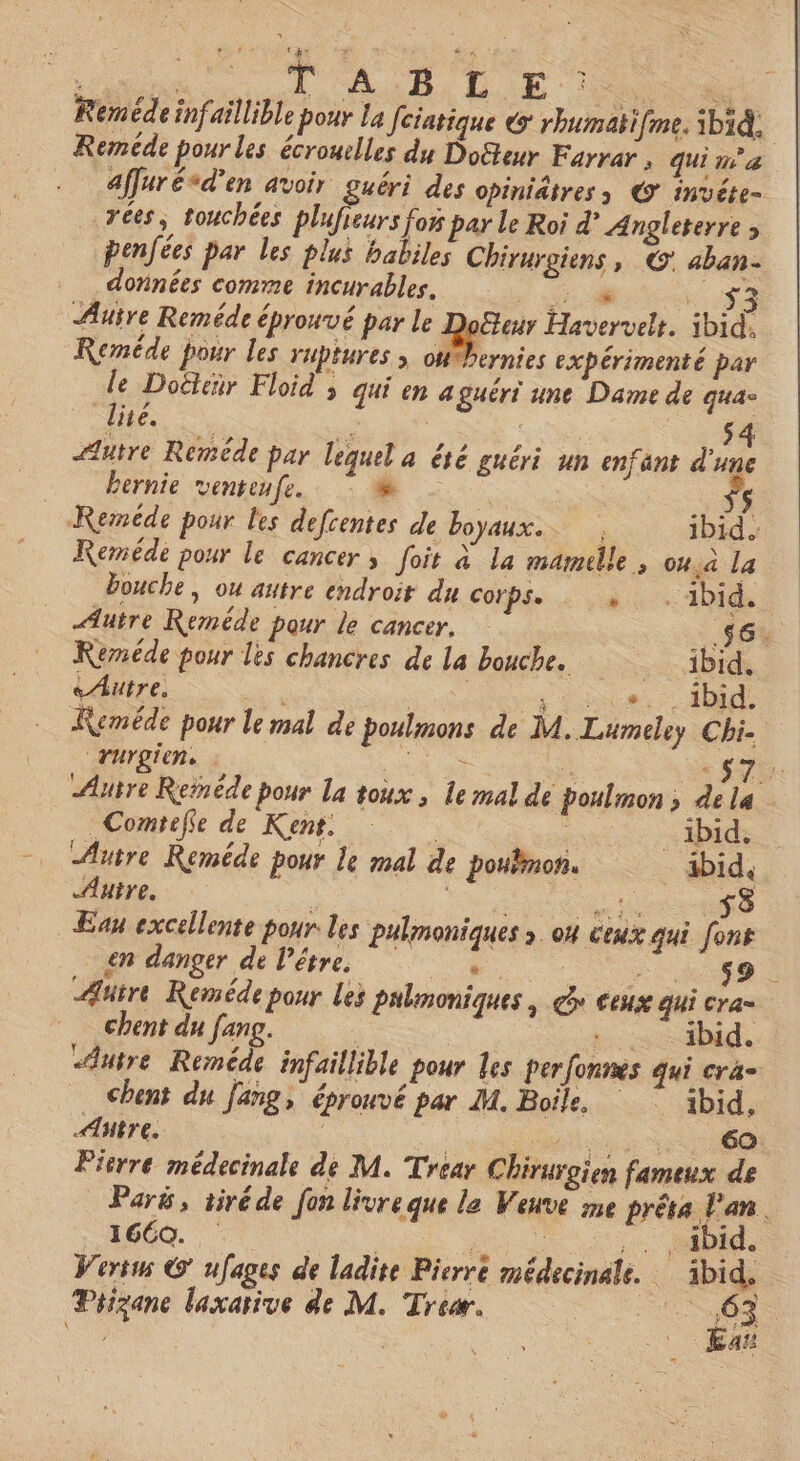 TABLE
Reméde infaillible pour la ſciatique & rhumatiſme. ibid.
Reméde pour les écrouelles du Docteur Farrar, qui m'a
aſſuré d'en avoir guéri des opiniâtres, & invéte-
rées, touchées pluſieurs fois par le Roi d'Angleterre,
penſées par les plus habiles Chirurgiens, & aban-
données comme incurables. 53
Autre Reméde éprouvé par le Docteur Havervelt. ibid.
Reméde pour les ruptures, ou hernies expérimenté par
le Docteur Floid, qui en a guéri une Dame de qua-
lité. 54
Autre Reméde par lequel a été guéri un enfant d'une
hernie venteuſe. 55
Reméde pour les deſcentes de boyaux. ibid.
Reméde pour le cancer, ſoit à la mamelle, ou à la
bouche, ou autre endroit du corps. ibid.
Autre Reméde pour le cancer. 56
Reméde pour les chancres de la bouche. ibid.
Autre. ibid.
Reméde pour le mal de poulmons de M. Lumeley Chi-
rurgien. 57
Autre Reméde pour la toux, le mal de poulmon, de la
Comteſſe de Kent. ibid.
Autre Reméde pour le mal de poulmon. ibid.
Autre. 58
Eau excellente pour les pulmoniques, ou ceux qui ſont
en danger de l'être. 59
Autre Reméde pour les pulmoniques, & ceux qui cra-
chent du ſang. ibid.
Autre Reméde infaillible pour les perſonnes qui cra-
chent du ſang, éprouvé par M. Boile. ibid.
Autre. 60
Pierre médecinale de M. Trear Chirurgien fameux de
Paris, tiré de ſon livre que la Veuve me prêta l'an
1660. ibid.
Vertus & uſages de ladite Pierre médecinale. ibid.
Ptizane laxative de M. Trear. 63
Eau